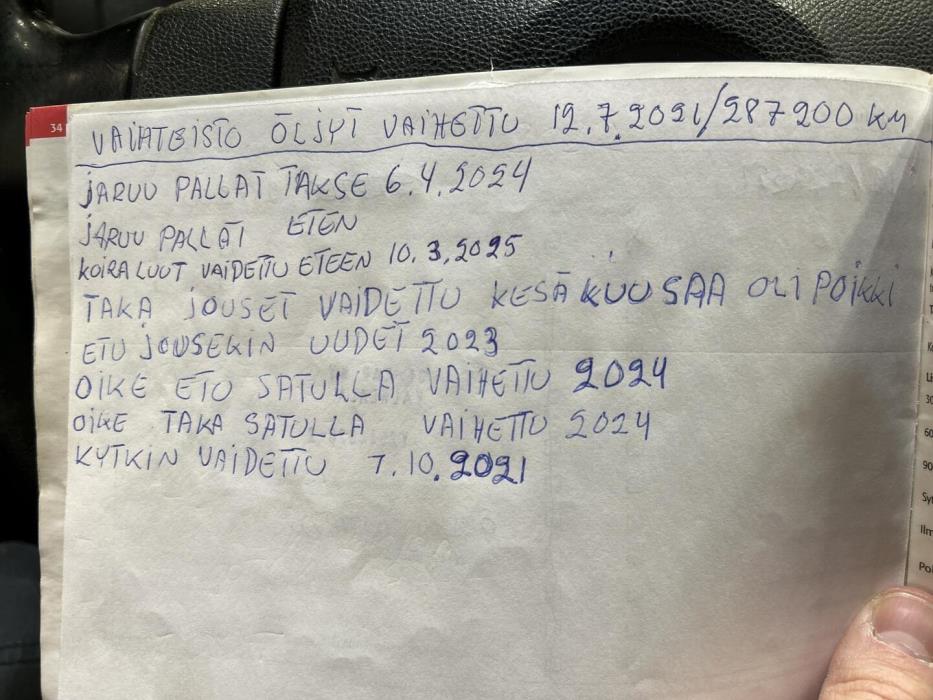 34
VAIHTEISTO ÖLJYT VAIHETTU 12.7.2021/287200 KM
JARUU PALLAT TAKSE 6.4.2024
JARUU PALLAT ETEN
KOIRALUUT VAIDETTU ETEEN 10.3.2025
TAKA JOUSET VAIDETTU KESÄKUUSAA OLI POIKKI
ETU JOUSEKIN UUDET 2023
OIKE ETU SATULLA VAIHETTU 2024
OIKE TAKA SATULLA VAIHETTU 2024
KYTKIN VAIDETTU 7.10.2021
30
60
90